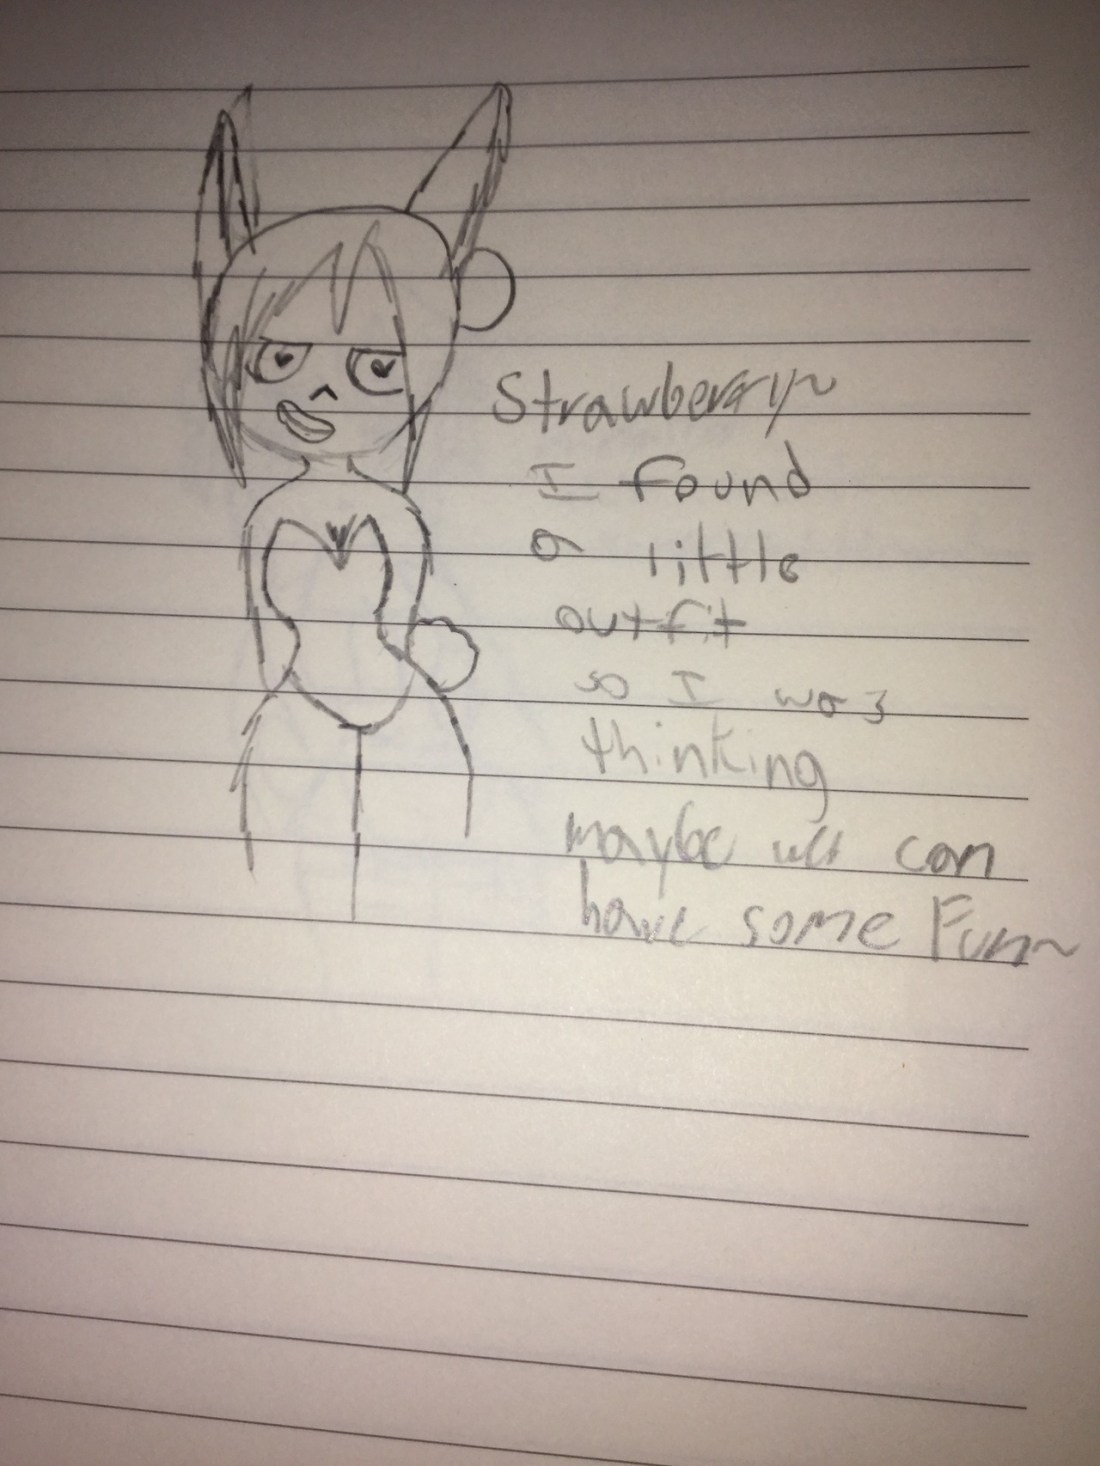 Strawberry~
I found
a little
outfit
so I was
thinking
maybe we can
have some Fun~